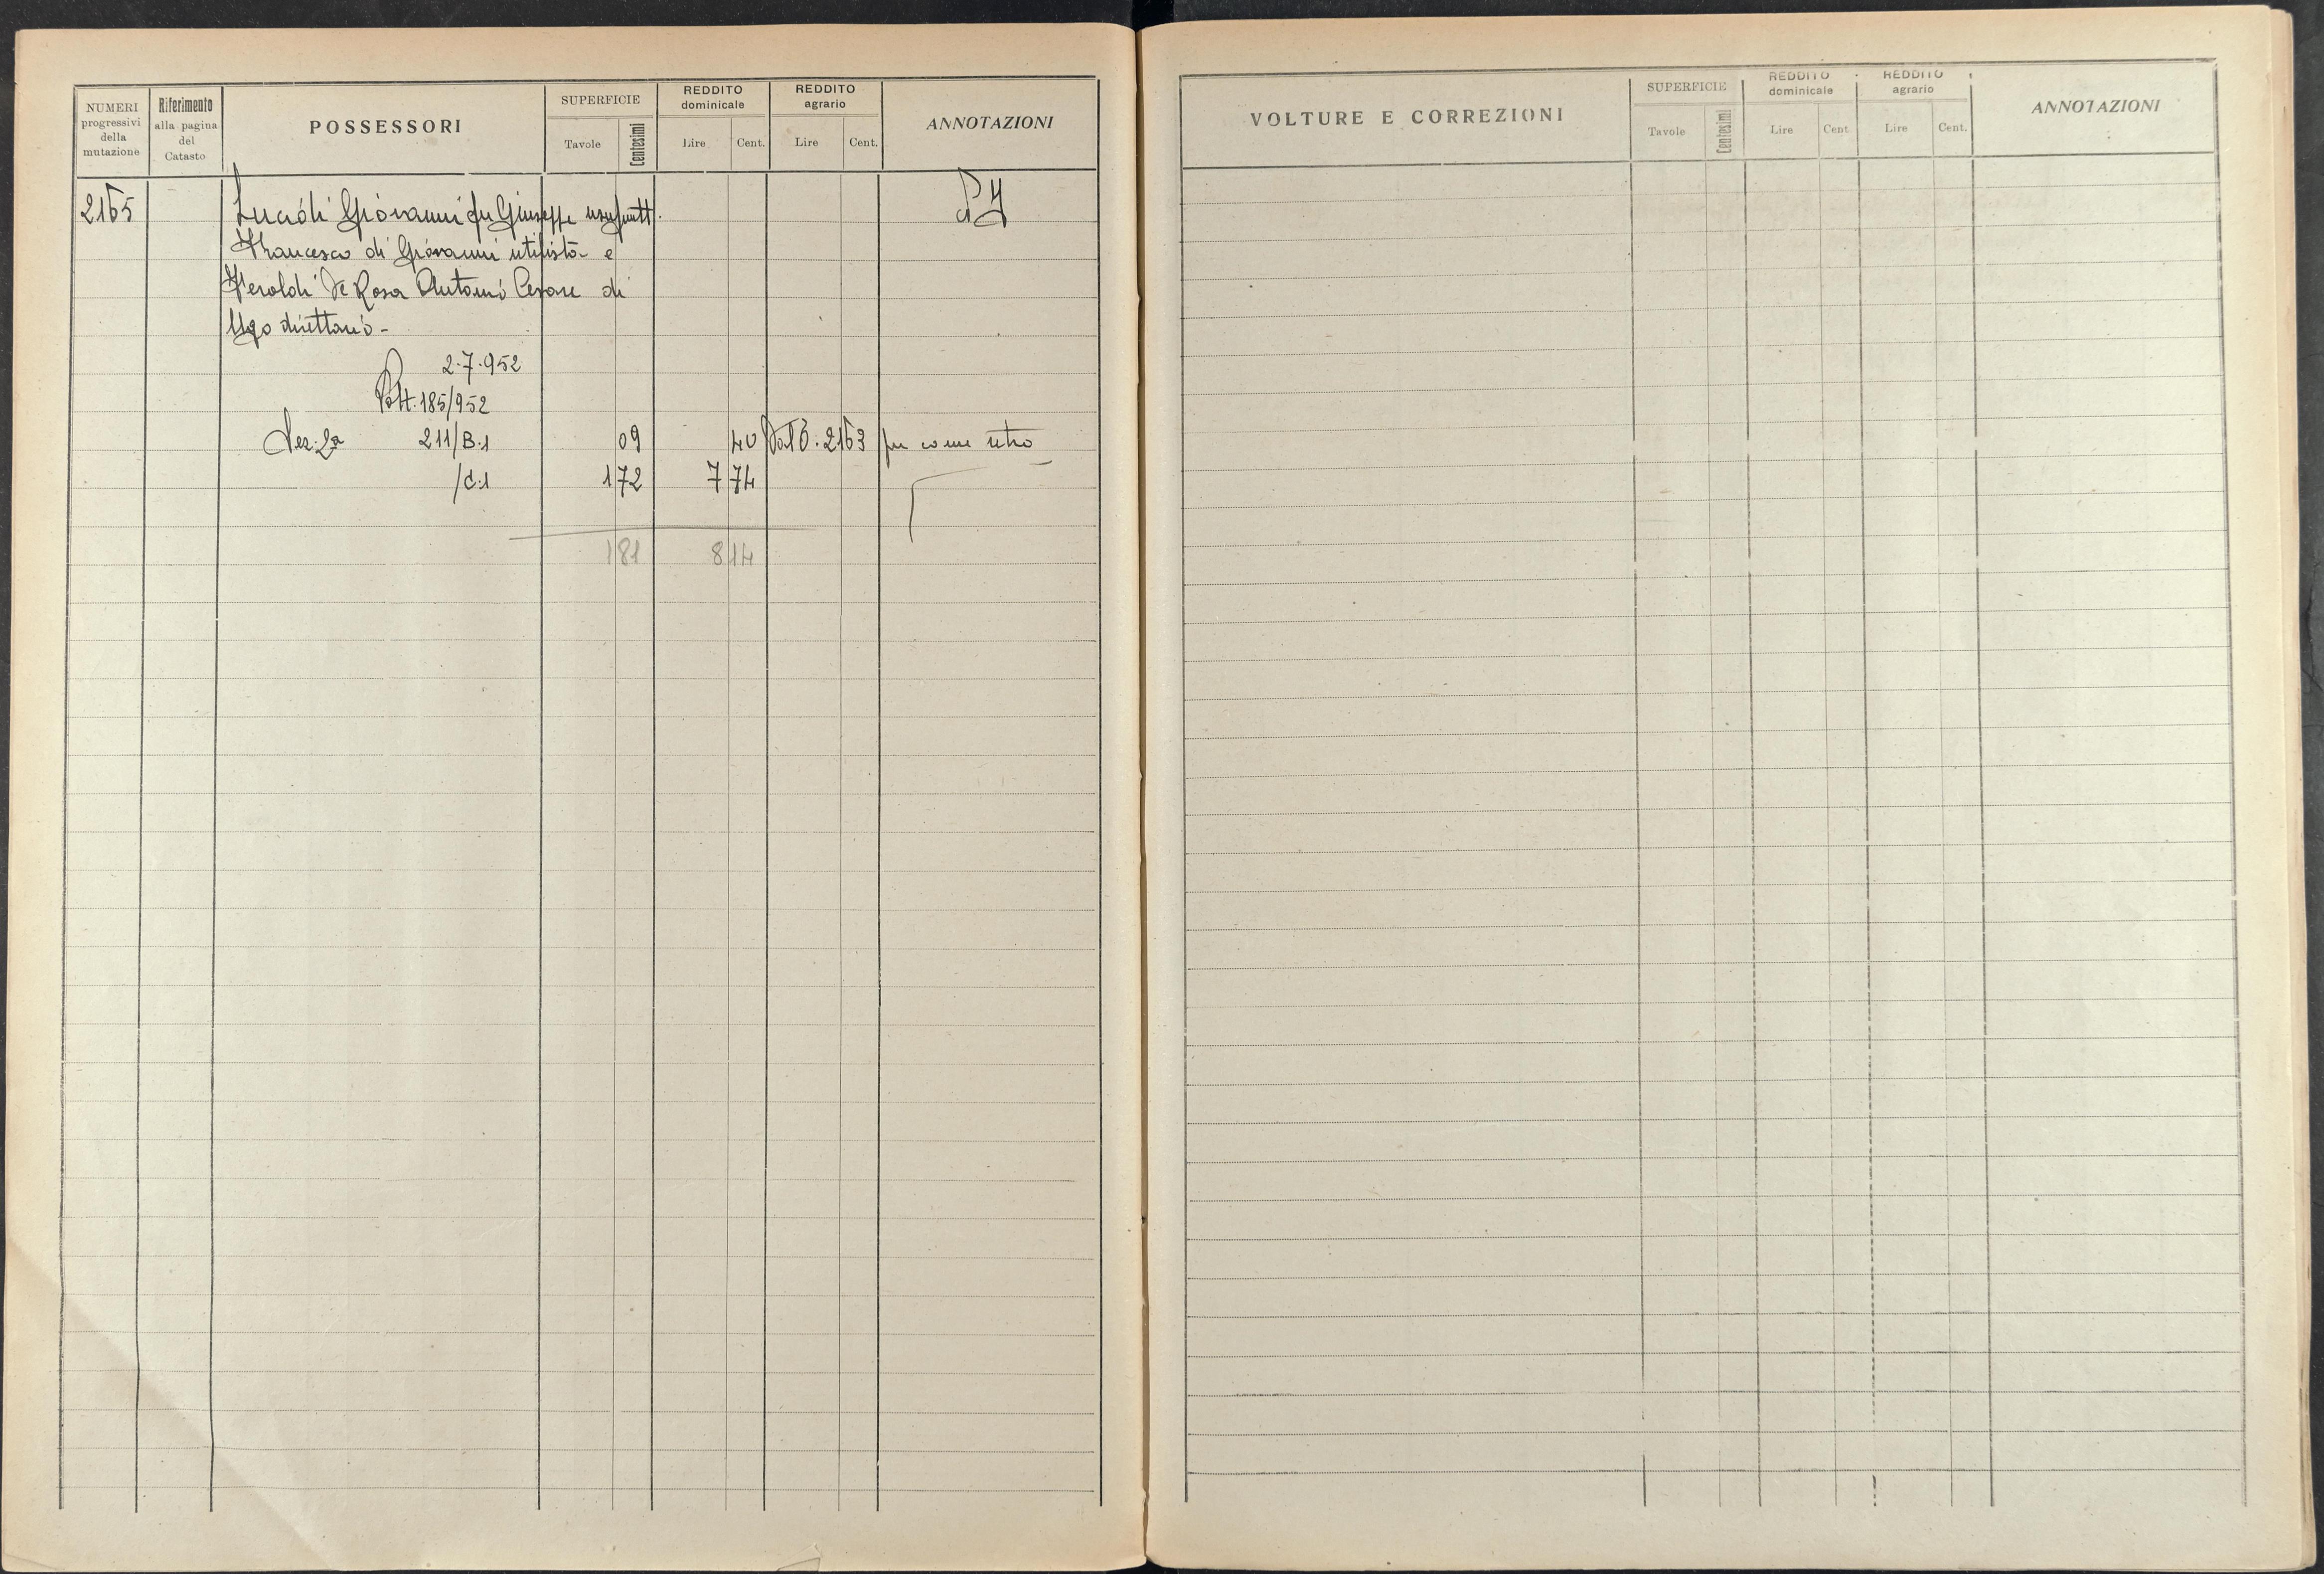 NUMERI
progressivi
della
mutazione
Riferimento
alla pagina
del
Catasto
POSSESSORI
SUPERFICIE
Tavole
Centesimi
REDDITO
dominicale
Lire
Cent.
REDDITO
agrario
Lire
Cent.
ANNOTAZIONI
2165
Giovanni fu Giuseppe usufrutt.
Francesco di Giovanni utilista e
De Rosa Antonio Cesare di
Ugo direttario -
2.7.952
185/952
Sez. 2a 211/B.1 09 40 Dal 6: 2163 per come retro
/C.1 1 72 7 74
1 81 8 14
VOLTURE E CORREZIONI
SUPERFICIE
Tavole
Centesimi
REDDITO
dominicale
Lire
Cent
REDDITO
agrario
Lire
Cent.
ANNOTAZIONI